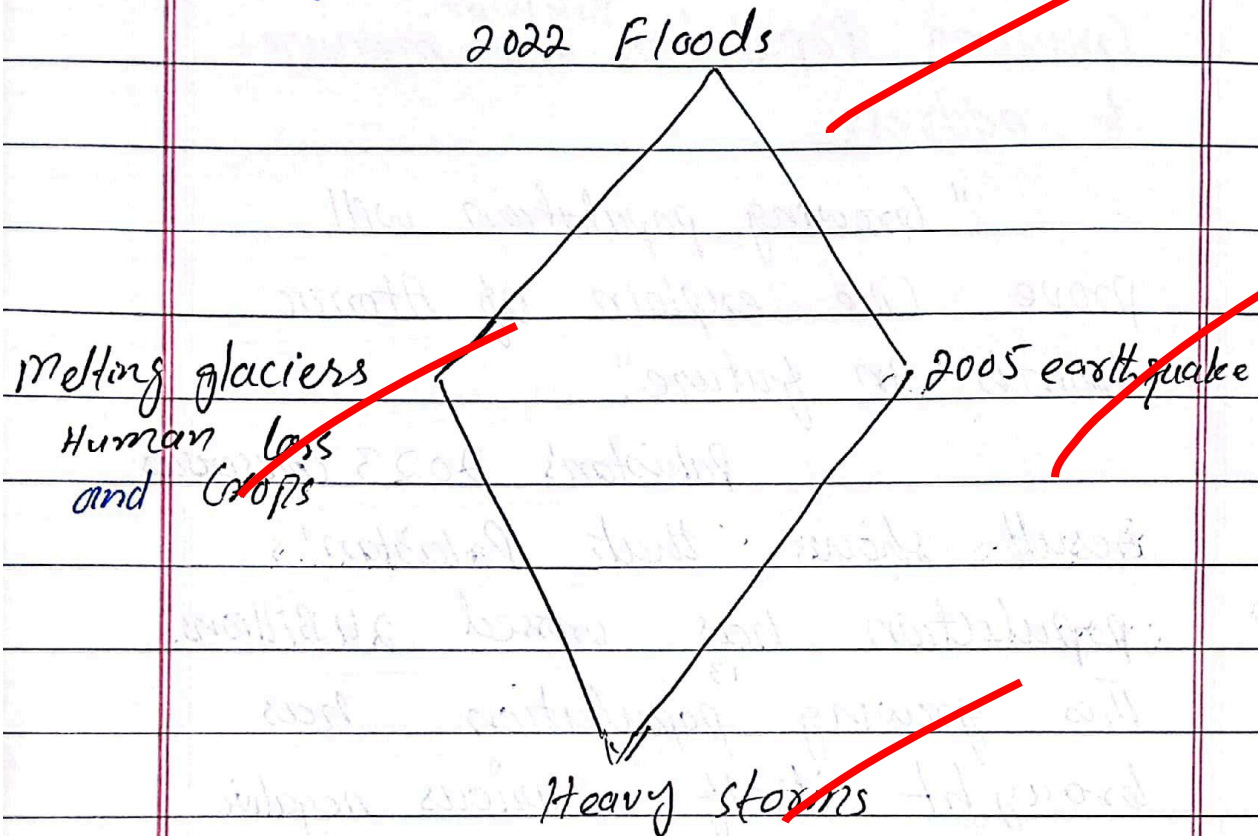 2022 Floods
Melting glaciers
Human loss
and Crops
2005 earthquake
Heavy storms